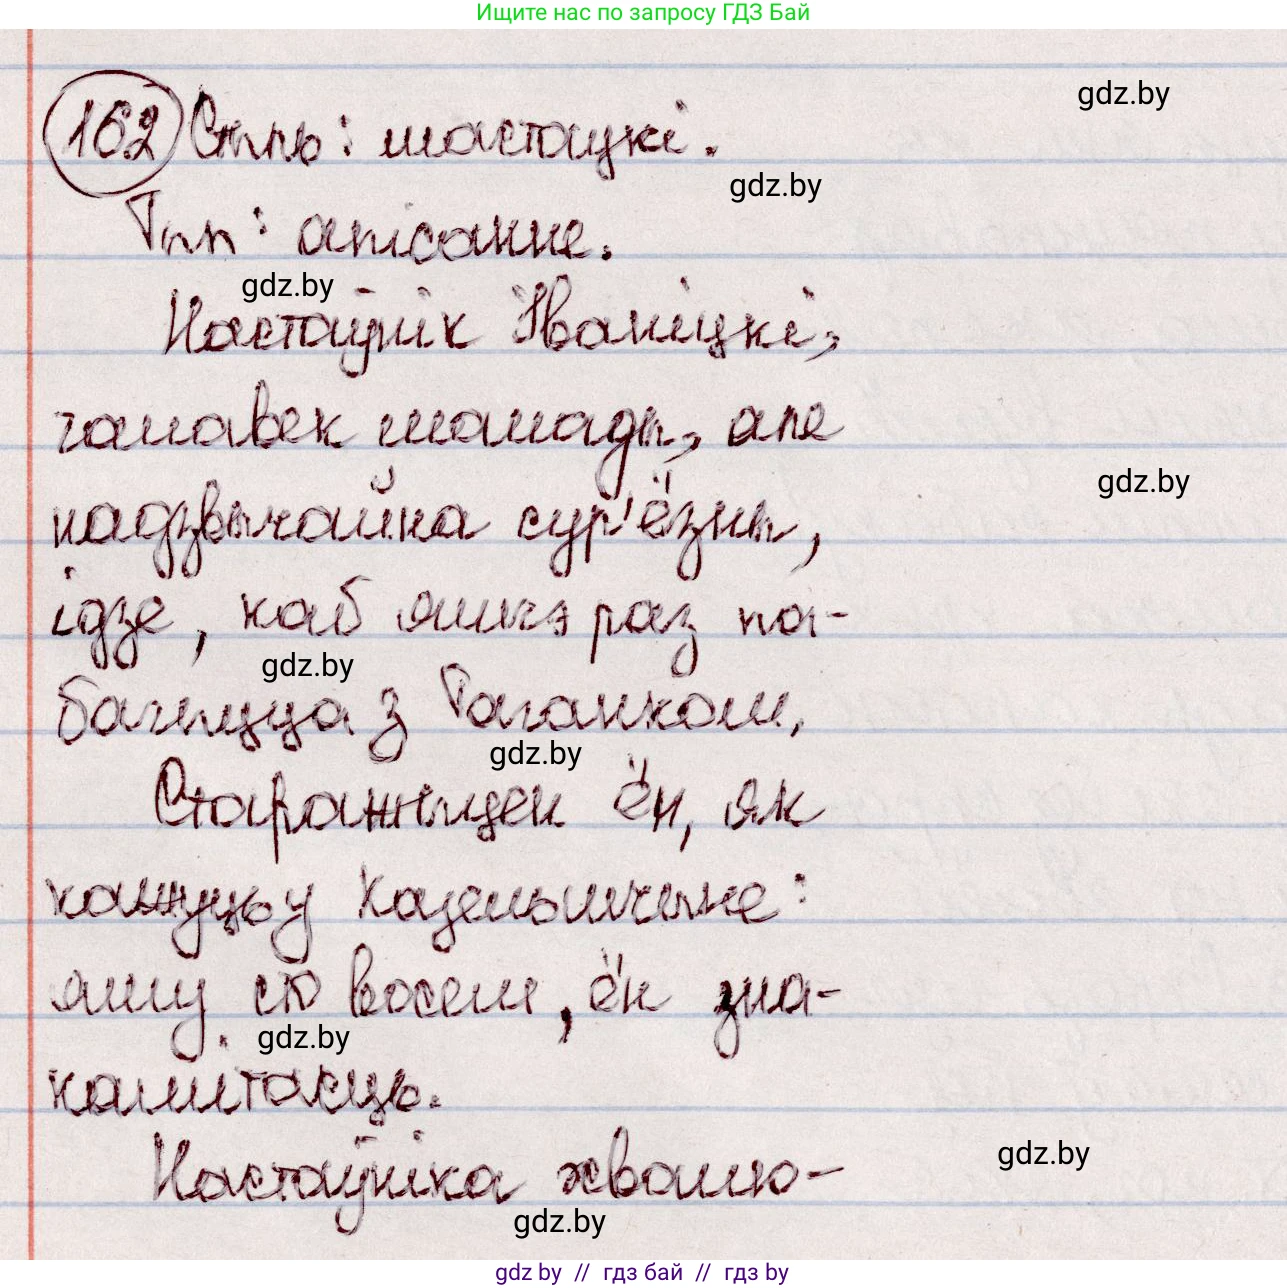 Ищите нас по запросу ГДЗ Бай
162 Стыль: мастацкі.
gdz.by
Тып: апісанне.
gdz.by
gdz.by
Настаўнік Іваніцкі,
чалавек малады, але
надзвычайна сур'ёзны,
gdz.by
ідзе, каб яшчэ раз па-
бачыцца з Таганком.
gdz.by
gdz.by
Старажыцел ён, як
кажуць у Казельшчыне:
яму сто восем, ён зна-
gdz.by
камітасць.
Настаўніка хвалю-
gdz.by
gdz.by
gdz by // гдз бай // гдз by